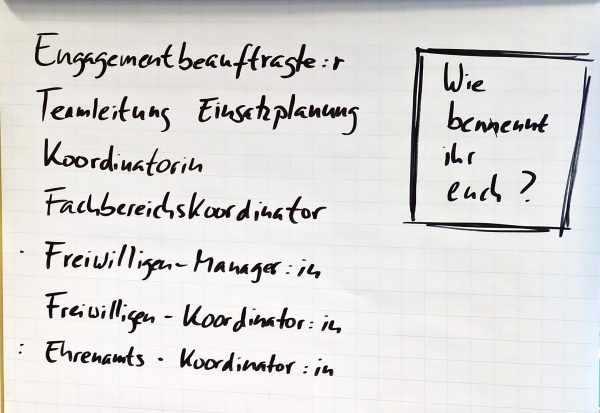 Engagementbeauftragte:r
Teamleitung Einsatzplanung
Koordinatorin
Fachbereichskoordinator
· Freiwilligen-Manager:in
Freiwilligen-Koordinator:in
: Ehrenamts-Koordinator:in
Wie
bennennt
ihr
euch?